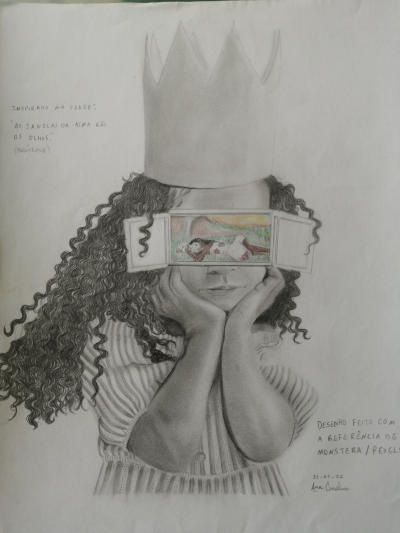 INSPIRADO NA FRASE:
"AS JANELAS DA ALMA SÃO
OS OLHOS"
DESENHO FEITO COM
A REFERÊNCIA DE
MONSTERA / PEXELS
Ana Carolina